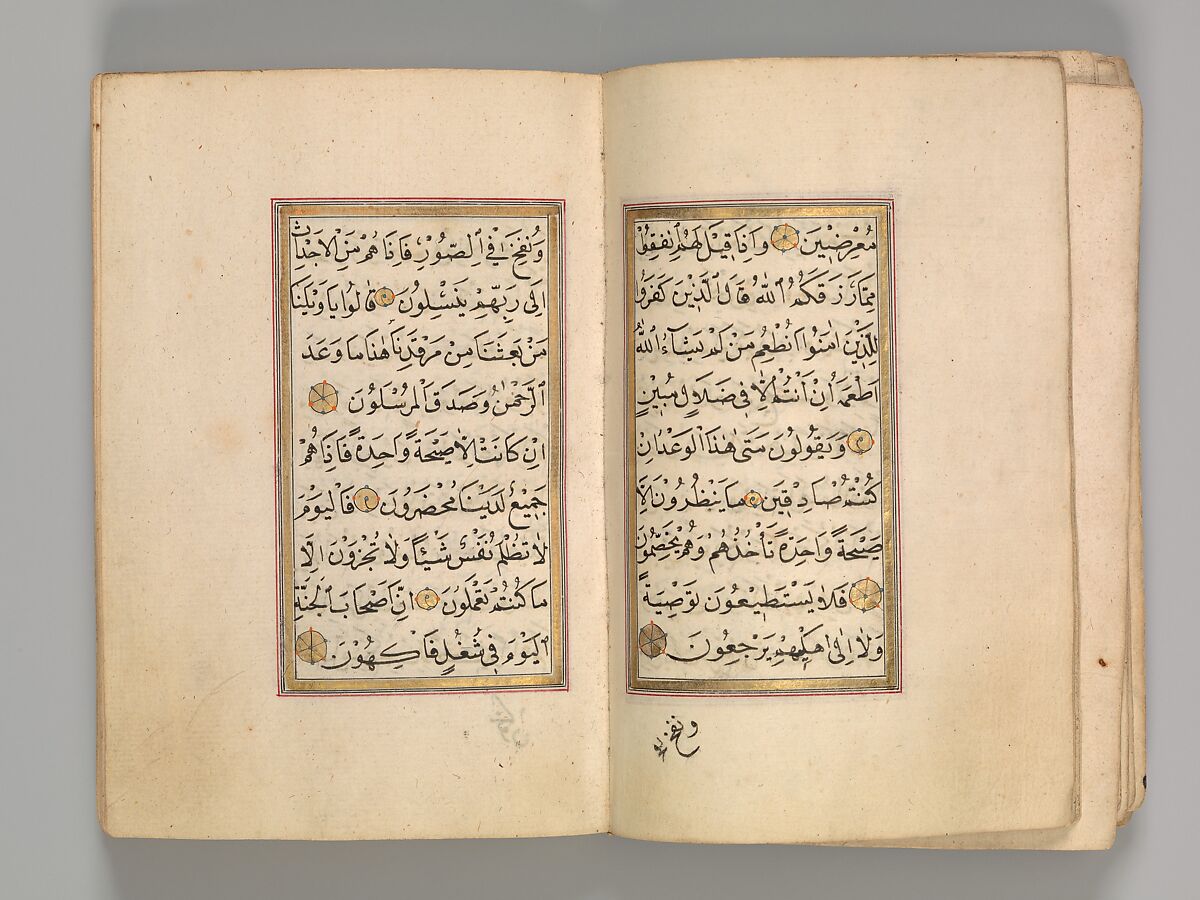 مُعْرِضِينَ وَاِذَا قِيلَ لَهُمْ اَنْفِقُوا
مِمَّا رَزَقَكُمُ اللّٰهُ قَالَ الَّذِينَ كَفَرُوا
لِلَّذِينَ اٰمَنُوا اَنُطْعِمُ مَنْ لَمْ يَشَٓاءُ اللّٰهُ
اَطْعَمَهُ اِنْ اَنْتُمْ اِلَّا فِى ضَلَالٍ مُبِينٍ
وَيَقُولُونَ مَتٰى هٰذَا الْوَعْدُ اِنْ
كُنْتُمْ صَادِقِينَ مَا يَنْظُرُونَ اِلَّا
صَيْحَةً وَاحِدَةً تَأْخُذُهُمْ وَهُمْ يَخِصِّمُونَ
فَلَا يَسْتَطِيعُونَ تَوْصِيَةً
وَلَا اِلٰى اَهْلِهِمْ يَرْجِعُونَ
ونفخ فى
وَنُفِخَ فِى الصُّورِ فَاِذَا هُمْ مِنَ الْاَجْدَاثِ
اِلٰى رَبِّهِمْ يَنْسِلُونَ قَالُوا يَا وَيْلَنَا
مَنْ بَعَثَنَا مِنْ مَرْقَدِنَا هٰذَا مَا وَعَدَ
الرَّحْمٰنُ وَصَدَقَ الْمُرْسَلُونَ
اِنْ كَانَتْ اِلَّا صَيْحَةً وَاحِدَةً فَاِذَا هُمْ
جَمِيعٌ لَدَيْنَا مُحْضَرُونَ فَالْيَوْمَ
لَا تُظْلَمُ نَفْسٌ شَيْئًا وَلَا تُجْزَوْنَ اِلَّا
مَا كُنْتُمْ تَعْمَلُونَ اِنَّ اَصْحَابَ الْجَنَّةِ
الْيَوْمَ فِى شُغُلٍ فَاكِهُونَ